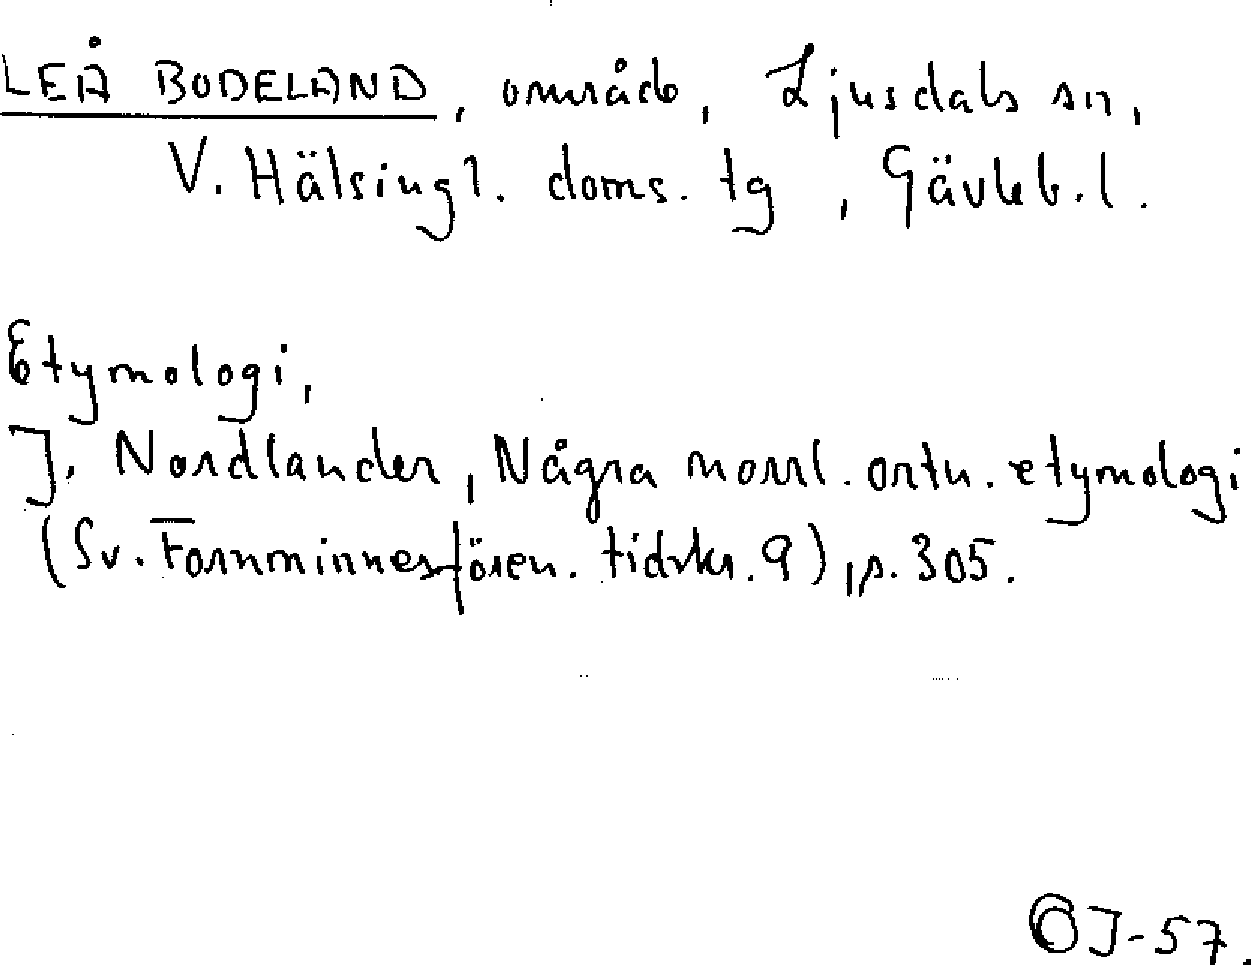 LEÅ BODELAND, område, Ljusdals sn,
V. Hälsingl. doms. tg, Gävleb. l.
Etymologi,
J. Nordlander, Några norrl. ortn. etymologi
(Sv. Fornminnesfören. tidskr. 9), p. 305.
J-57.